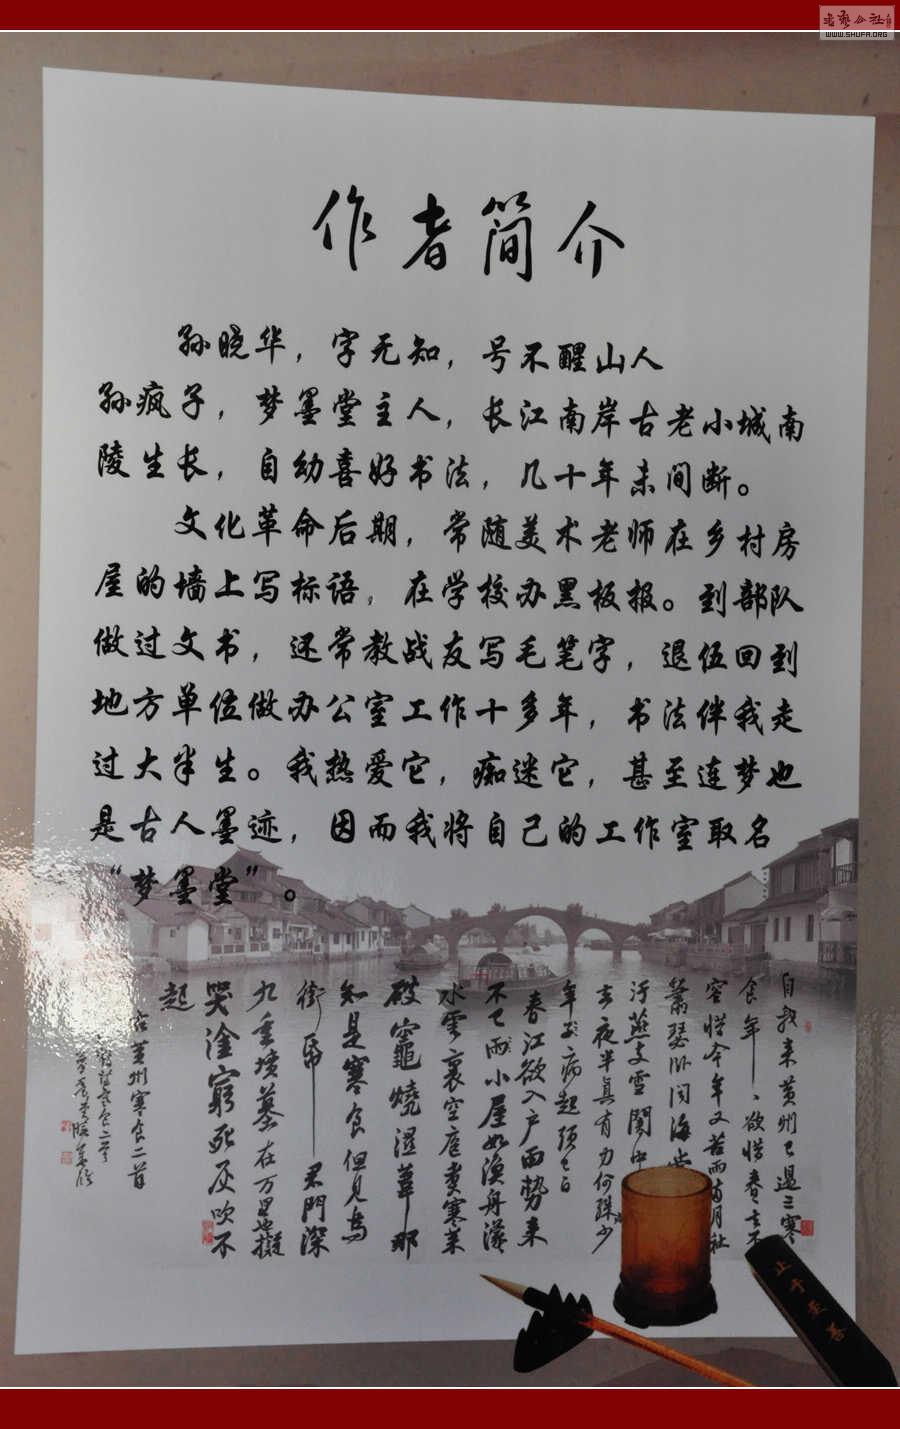 WWW.SHUFA.ORG
作者简介
孙晓华，字无知，号不醒山人
孙疯子，梦墨堂主人，长江南岸古老小城南
陵生长，自幼喜好书法，几十年未间断。
文化革命后期，常随美术老师在乡村房
屋的墙上写标语，在学校办黑板报。到部队
做过文书，还常教战友写毛笔字，退伍回到
地方单位做办公室工作十多年，书法伴我走
过大半生。我热爱它，痴迷它，甚至连梦也
是古人墨迹，因而我将自己的工作室取名
“梦墨堂”。
自我来黄州已过三寒
食年年欲惜春春去不
容惜今年又苦雨两月秋
萧瑟卧闻海棠
污燕支雪闇中
去夜半真有力何殊少
年子病起须已白
春江欲入户雨势来
不已雨小屋如渔舟濛
水云里空庖煮寒菜
破灶烧湿苇那
知是寒食但见乌
衔帋君门深
九重坟墓在万里也拟
哭涂穷死灰吹不
起
右黄州寒食二首
止于至善